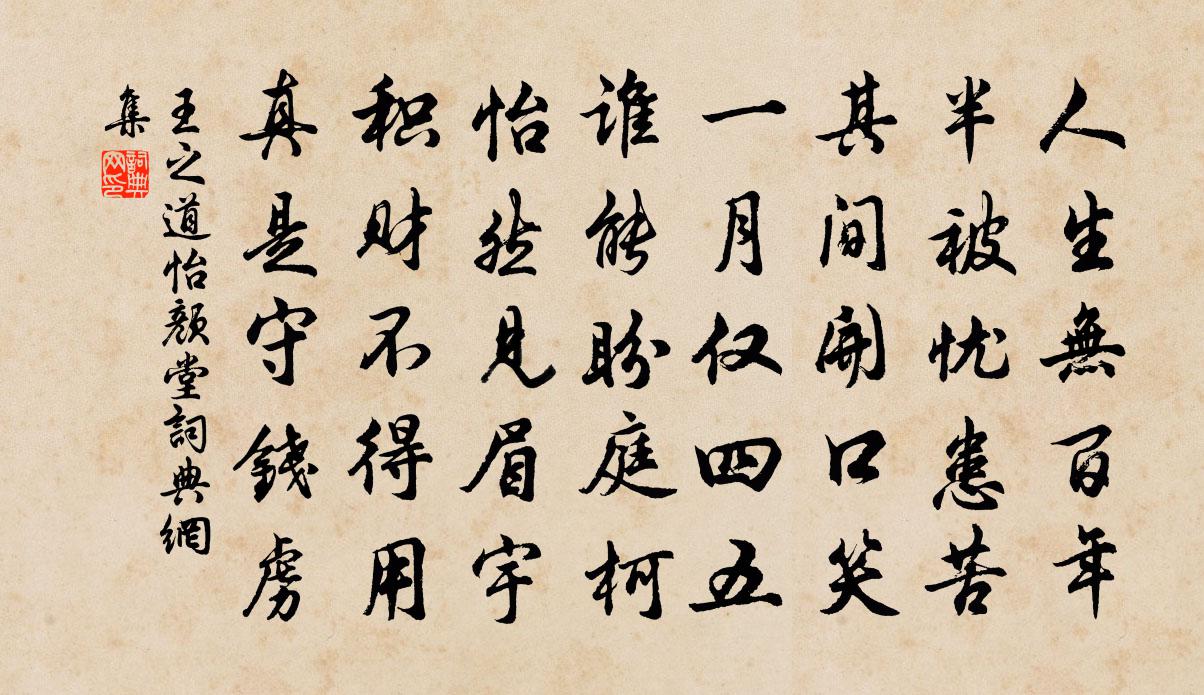 人生無百年
半被忧患苦
其间開口笑
一月仅四五
谁能盼庭柯
怡然見眉宇
积财不得用
真是守錢虏
王之道怡顏堂詞典網
集
詞典
网印